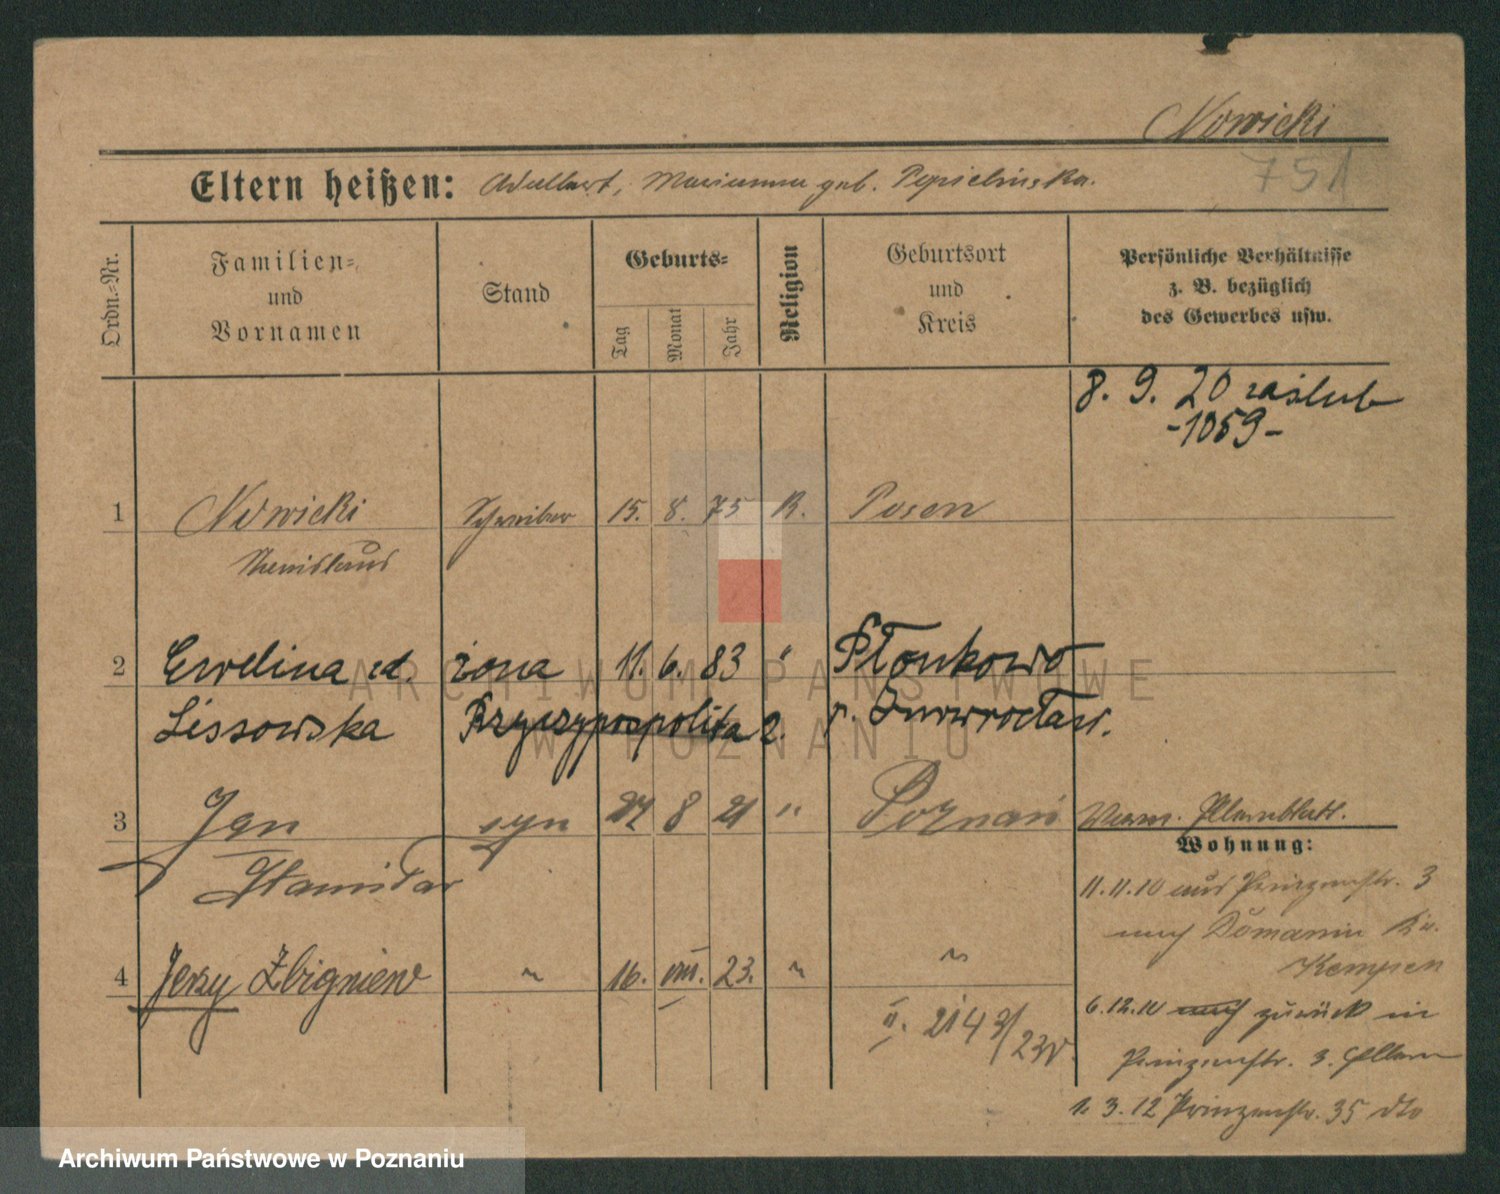 Nowicki
751
Eltern heißen: Adalbert, Marianna geb. Popielinska.
Ordn.-Nr.
Familien-
und
Vornamen
Stand
Geburts-
Tag
Monat
Jahr
Religion
Geburtsort
und
Kreis
Persönliche Verhältnisse
z. B. bezüglich
des Gewerbes usw.
8. 9. 20 zaślub
-1059-
1 Nowicki Schreiber 15. 8. 75 K. Posen
Stanislaus
2 Ewelina zd. żona 11. 6. 83 " Płonkowo
Lissowska Rzyczypospolita 2. p. Inowrocław.
3 Jan syn 27 8 21 " Poznań
Stanisław
Verm. Elternblatt.
Wohnung:
11.11.10 aus Prinzenstr. 3
nach Domanin Kr.
Kempen
4 Jerzy Zbigniew " 16. VIII. 23. " "
II. 2143/23
6.12.10 nach zurück in
Prinzenstr. 3. Eltern
1. 3. 12 Prinzenstr. 35 dto
ARCHIWUM PAŃSTWOWE
W POZNANIU
Archiwum Państwowe w Poznaniu